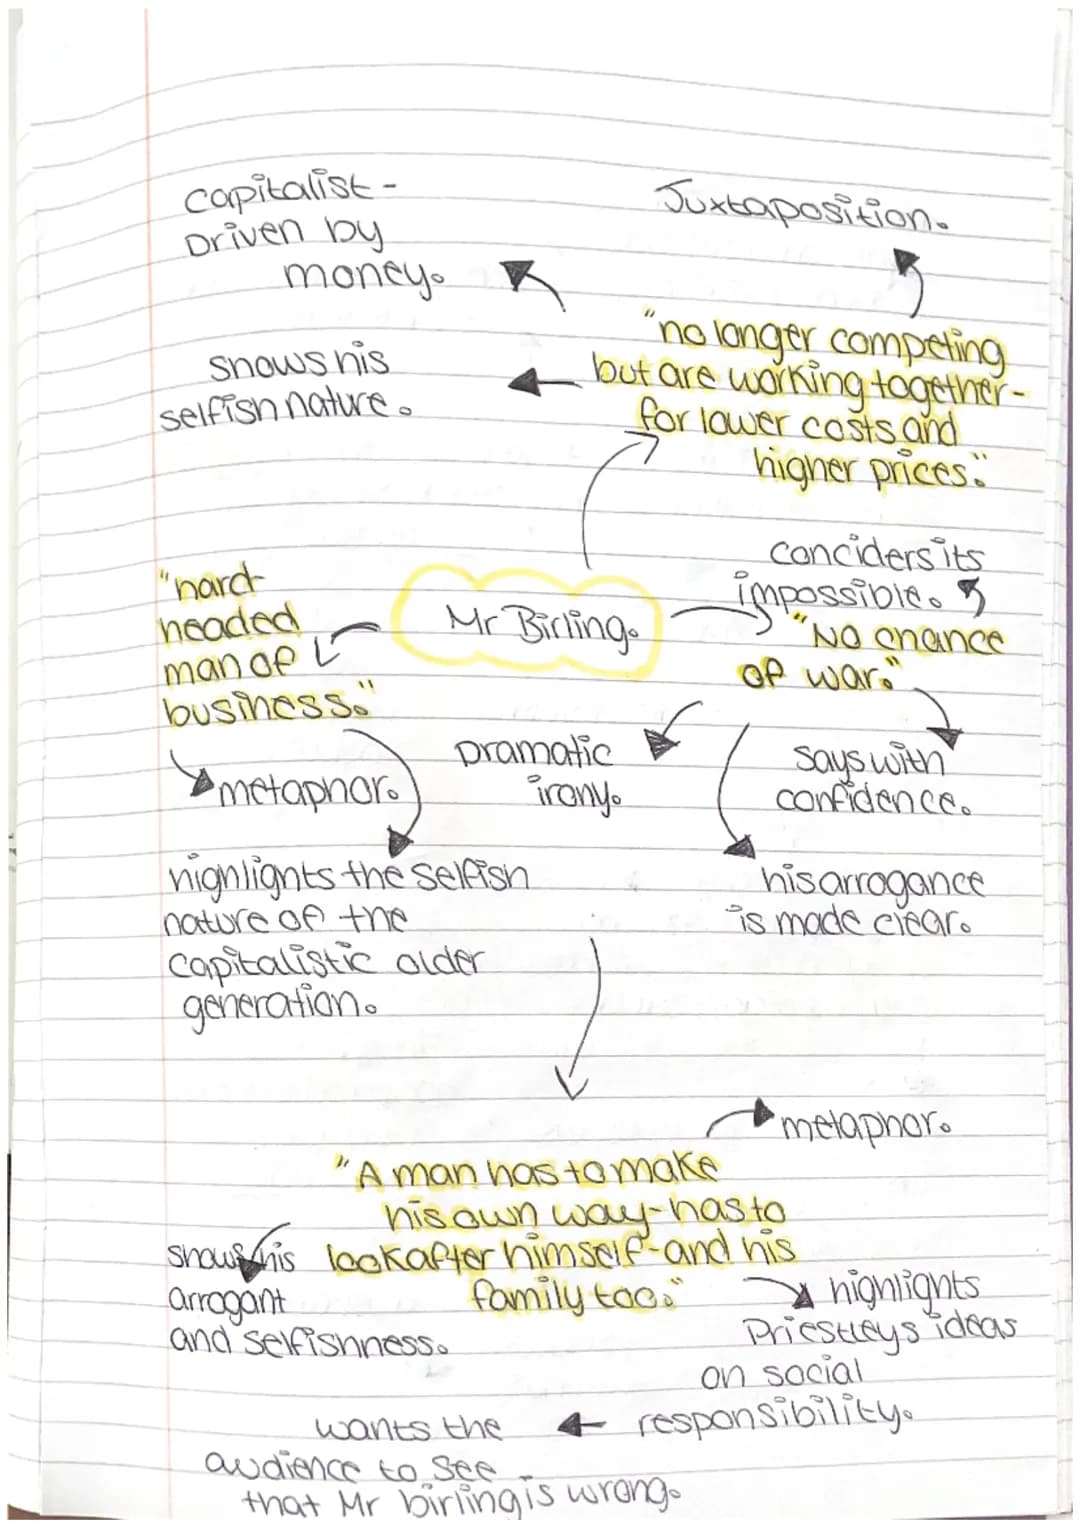 Capitalist -
Driven by
money.
Juxtaposition.
"no longer competing
but are working together-
for lower costs and
higher prices."
shows his
selfish nature.
"hard
headed
man of
business."
Mr Birling.
conciders its
impossible.
"No chance
of war."
metaphor.
Dramatic
irony.
says with
confidence.
highlights the selfish
nature of the
capitalistic older
generation.
his arrogance
is made clear.
metaphor.
"A man has to make
his own way-has to
look after himself-and his
family too."
shows his
arrogant
and selfishness.
highlights
Priestleys ideas
on social
responsibility.
wants the
audience to see
that Mr birling is wrong.